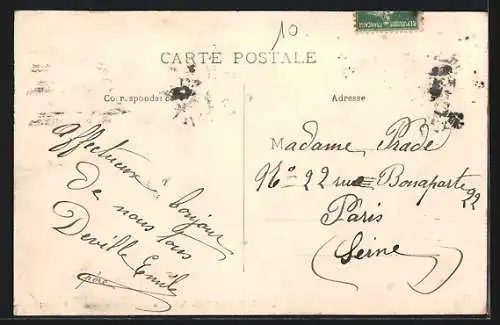 10
REPUBLIQUE FRANÇAISE
CARTE POSTALE
Correspondance
Adresse
Affectueux bonjour
de nous tous
Deville Emile
père
Madame Prade
22 rue Bonaparte 22
Paris
(Seine)